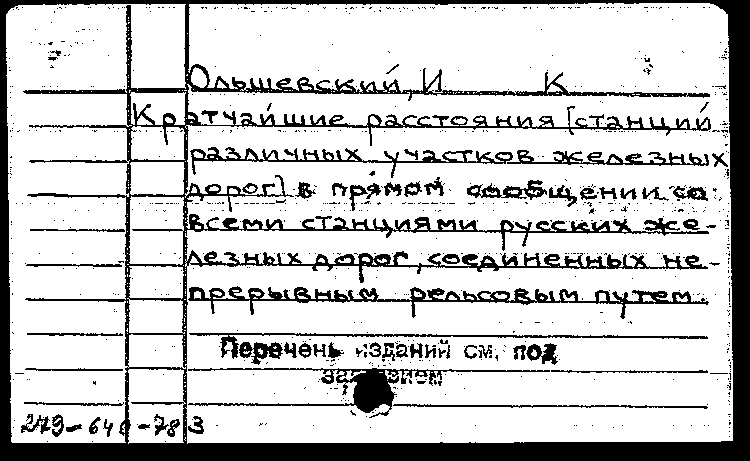 Ольшевский, И К
Кратчайшие расстояния [станций
различных участков железных
дорог] в прямом сообщении со
всеми станциями русских же-
лезных дорог, соединенных не-
прерывным рельсовым путем.
Перечень изданий см. под
заглавием